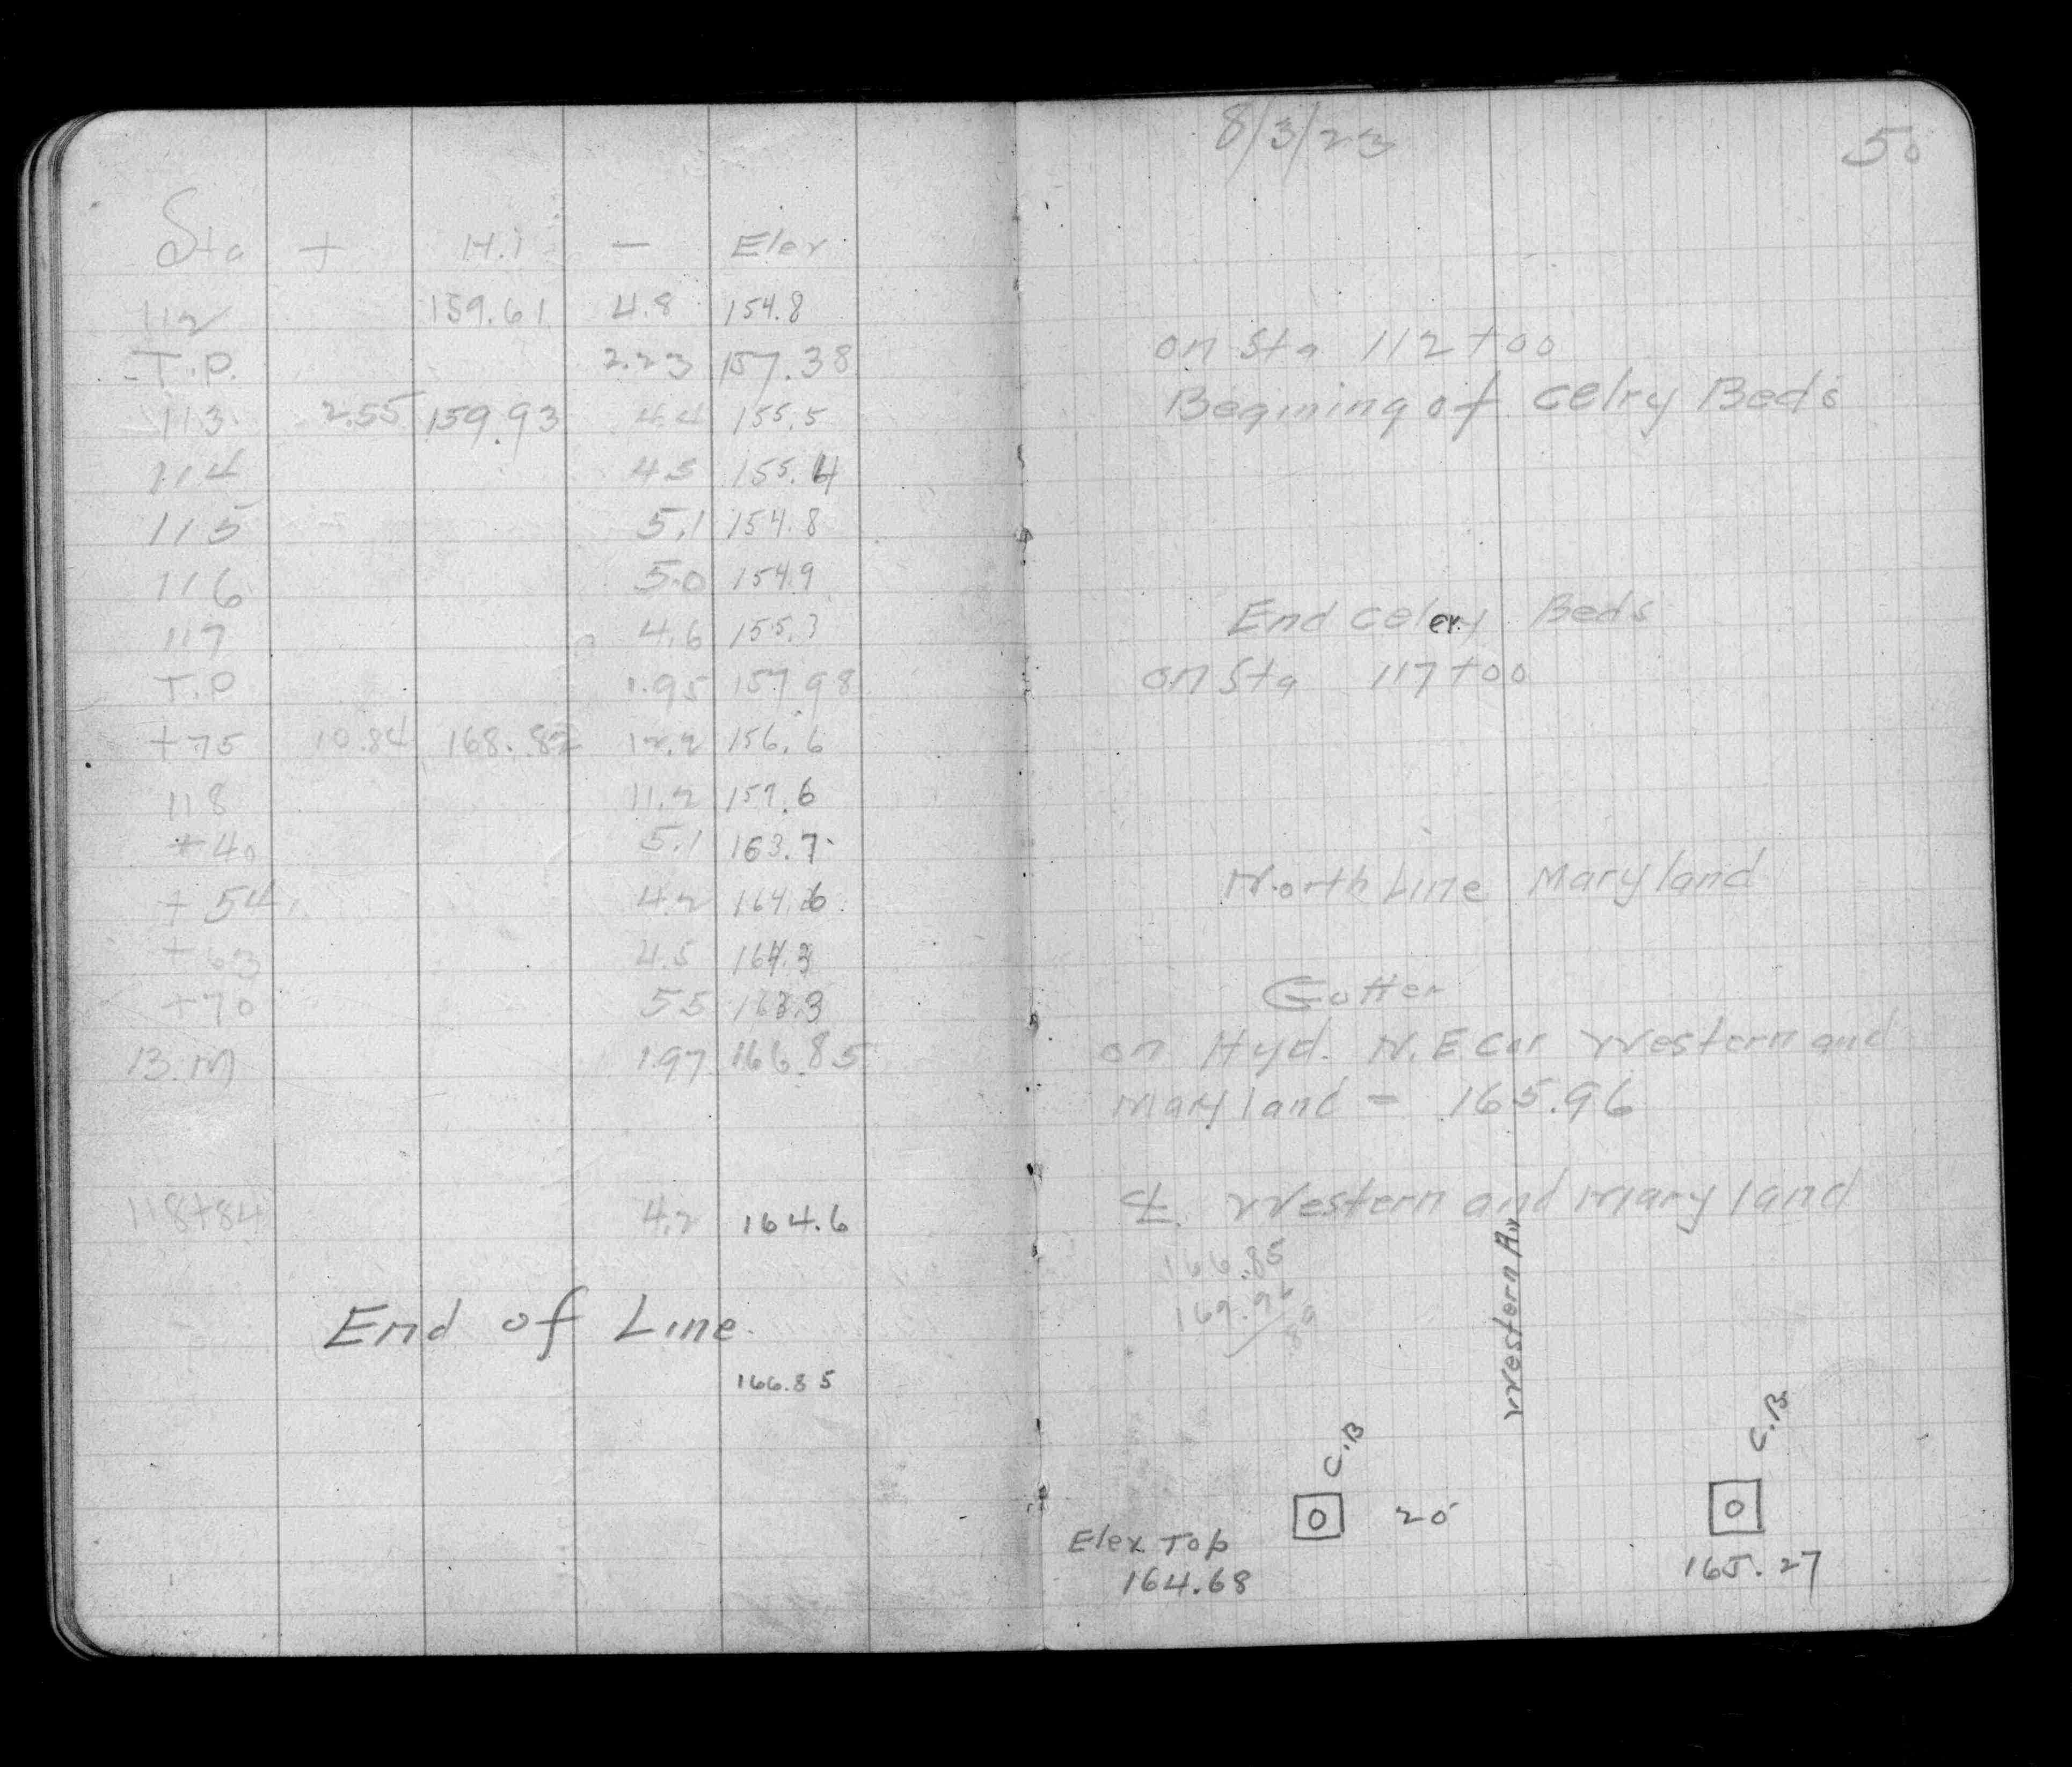 Sta + H.I - Elev
112 159.61 4.8 154.8
T.P. 2.23 157.38
113 2.55 159.93 4.4 155.5
114 4.5 155.4
115 5.1 154.8
116 5.0 154.9
117 4.6 155.3
T.P 1.95 157.98
+75 10.84 168.82 12.2 156.6
118 11.2 157.6
+40 5.1 163.7
+54 4.2 164.6
+63 4.5 164.3
+70 5.5 163.3
B.M 1.97 166.85
118+84 4.2 164.6
End of Line
166.85
8/3/23 50
on Sta 112+00
Begining of Celry Beds
End Celery Beds
on Sta 117+00
North Line Maryland
Gutter
on Hyd. N.E Cor Western and
Maryland = 165.96
℄ Western and Maryland
166.85
89
Western Av
C.B C.B
20
Elev Top
164.68
165.27